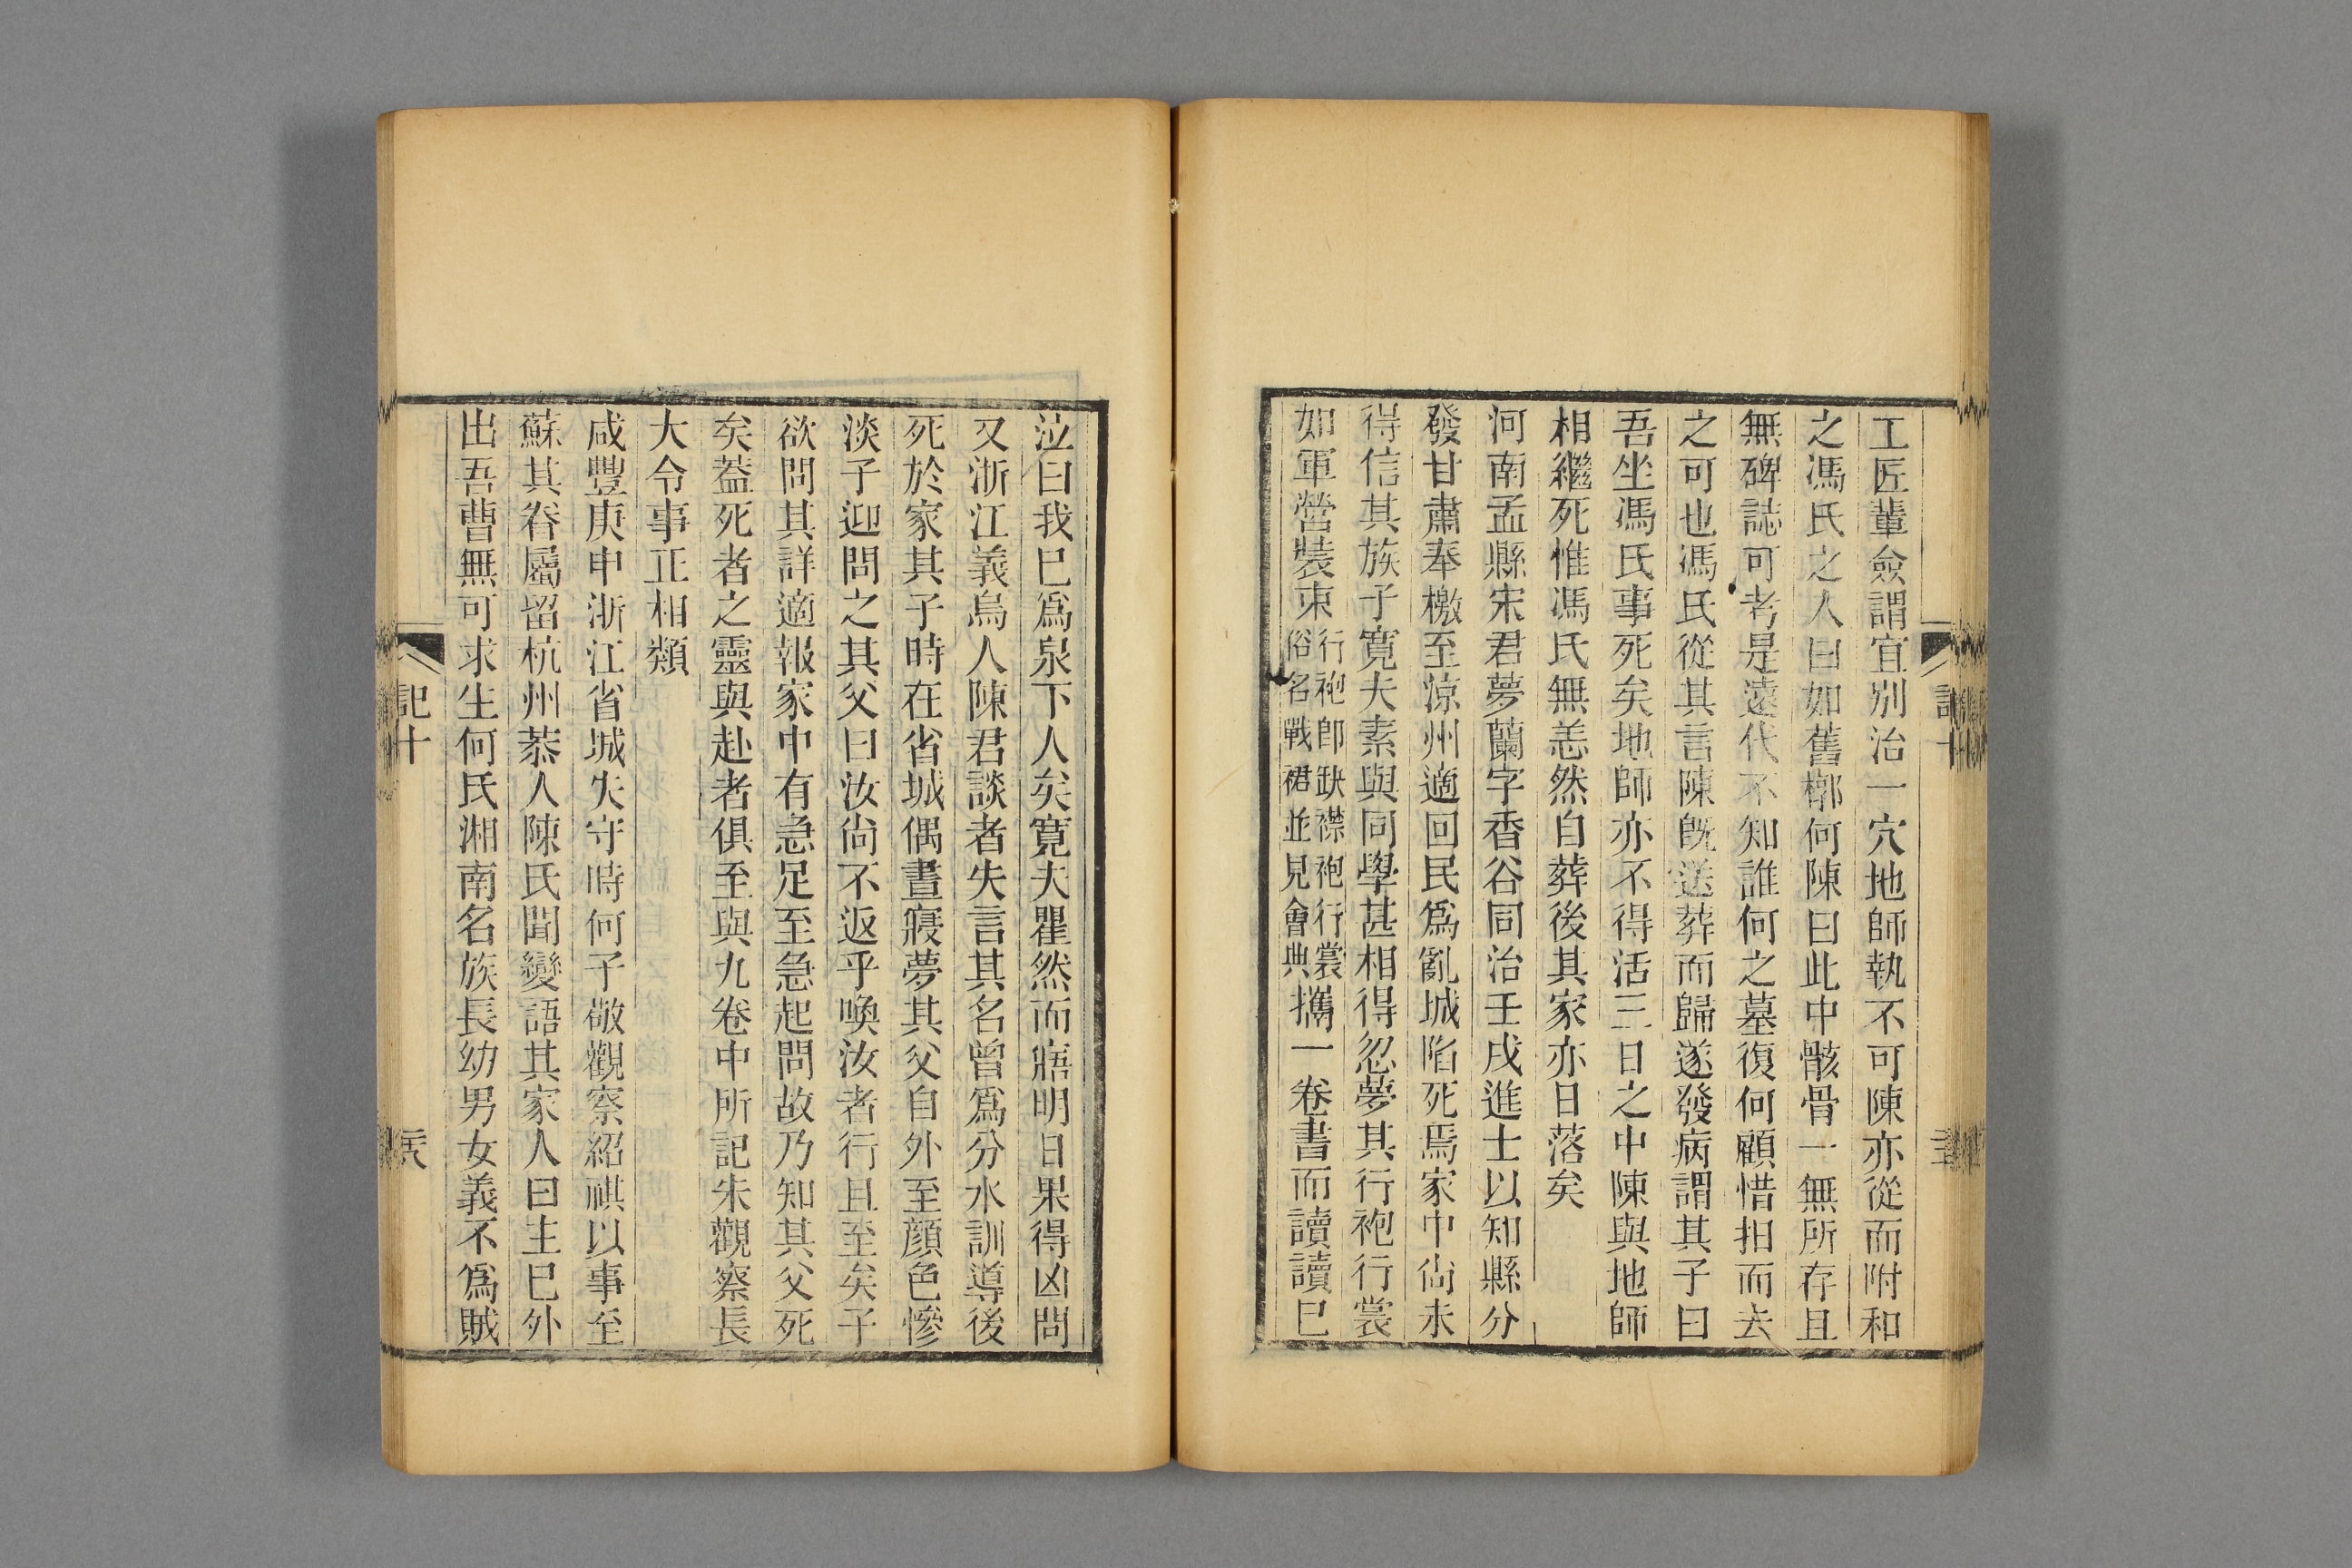 工匠輩僉謂宜別治一穴地師執不可陳亦從而附和
之馮氏之人曰如舊槨何陳曰此中骸骨一無所存且
無碑誌可考是遠代不知誰何之墓復何顧惜抇而去
之可也馮氏從其言陳旣送葬而歸遂發病謂其子曰
吾坐馮氏事死矣地師亦不得活三日之中陳與地師
相繼死惟馮氏無恙然自葬後其家亦日落矣
河南孟縣宋君夢蘭字香谷同治壬戌進士以知縣分
發甘肅奉檄至涼州適回民爲亂城陷死焉家中尙未
得信其族子寬夫素與同學甚相得忽夢其行袍行裳
如軍營裝束行袍卽缺襟袍行裳俗名戰裙並見會典攜一卷書而讀讀已
泣曰我已爲泉下人矣寬夫瞿然而寤明日果得凶問
又浙江義烏人陳君談者失言其名曾爲分水訓導後
死於家其子時在省城偶晝寢夢其父自外至顏色慘
淡子迎問之其父曰汝尙不返乎喚汝者行且至矣子
欲問其詳適報家中有急足至急起問故乃知其父死
矣葢死者之靈與赴者俱至與九卷中所記朱觀察長
大令事正相類
咸豐庚申浙江省城失守時何子敬觀察紹祺以事至
蘇其眷屬留杭州恭人陳氏聞變語其家人曰主已外
出吾曹無可求生何氏湘南名族長幼男女義不爲賊
記十